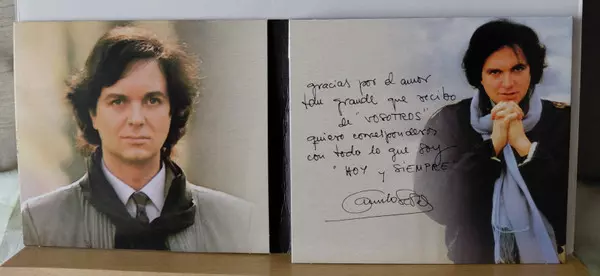 gracias por el amor
tan grande que recibo
de "VOSOTROS"
quiero corresponderos
con todo lo que soy
"HOY y SIEMPRE"
Camilo Sesto